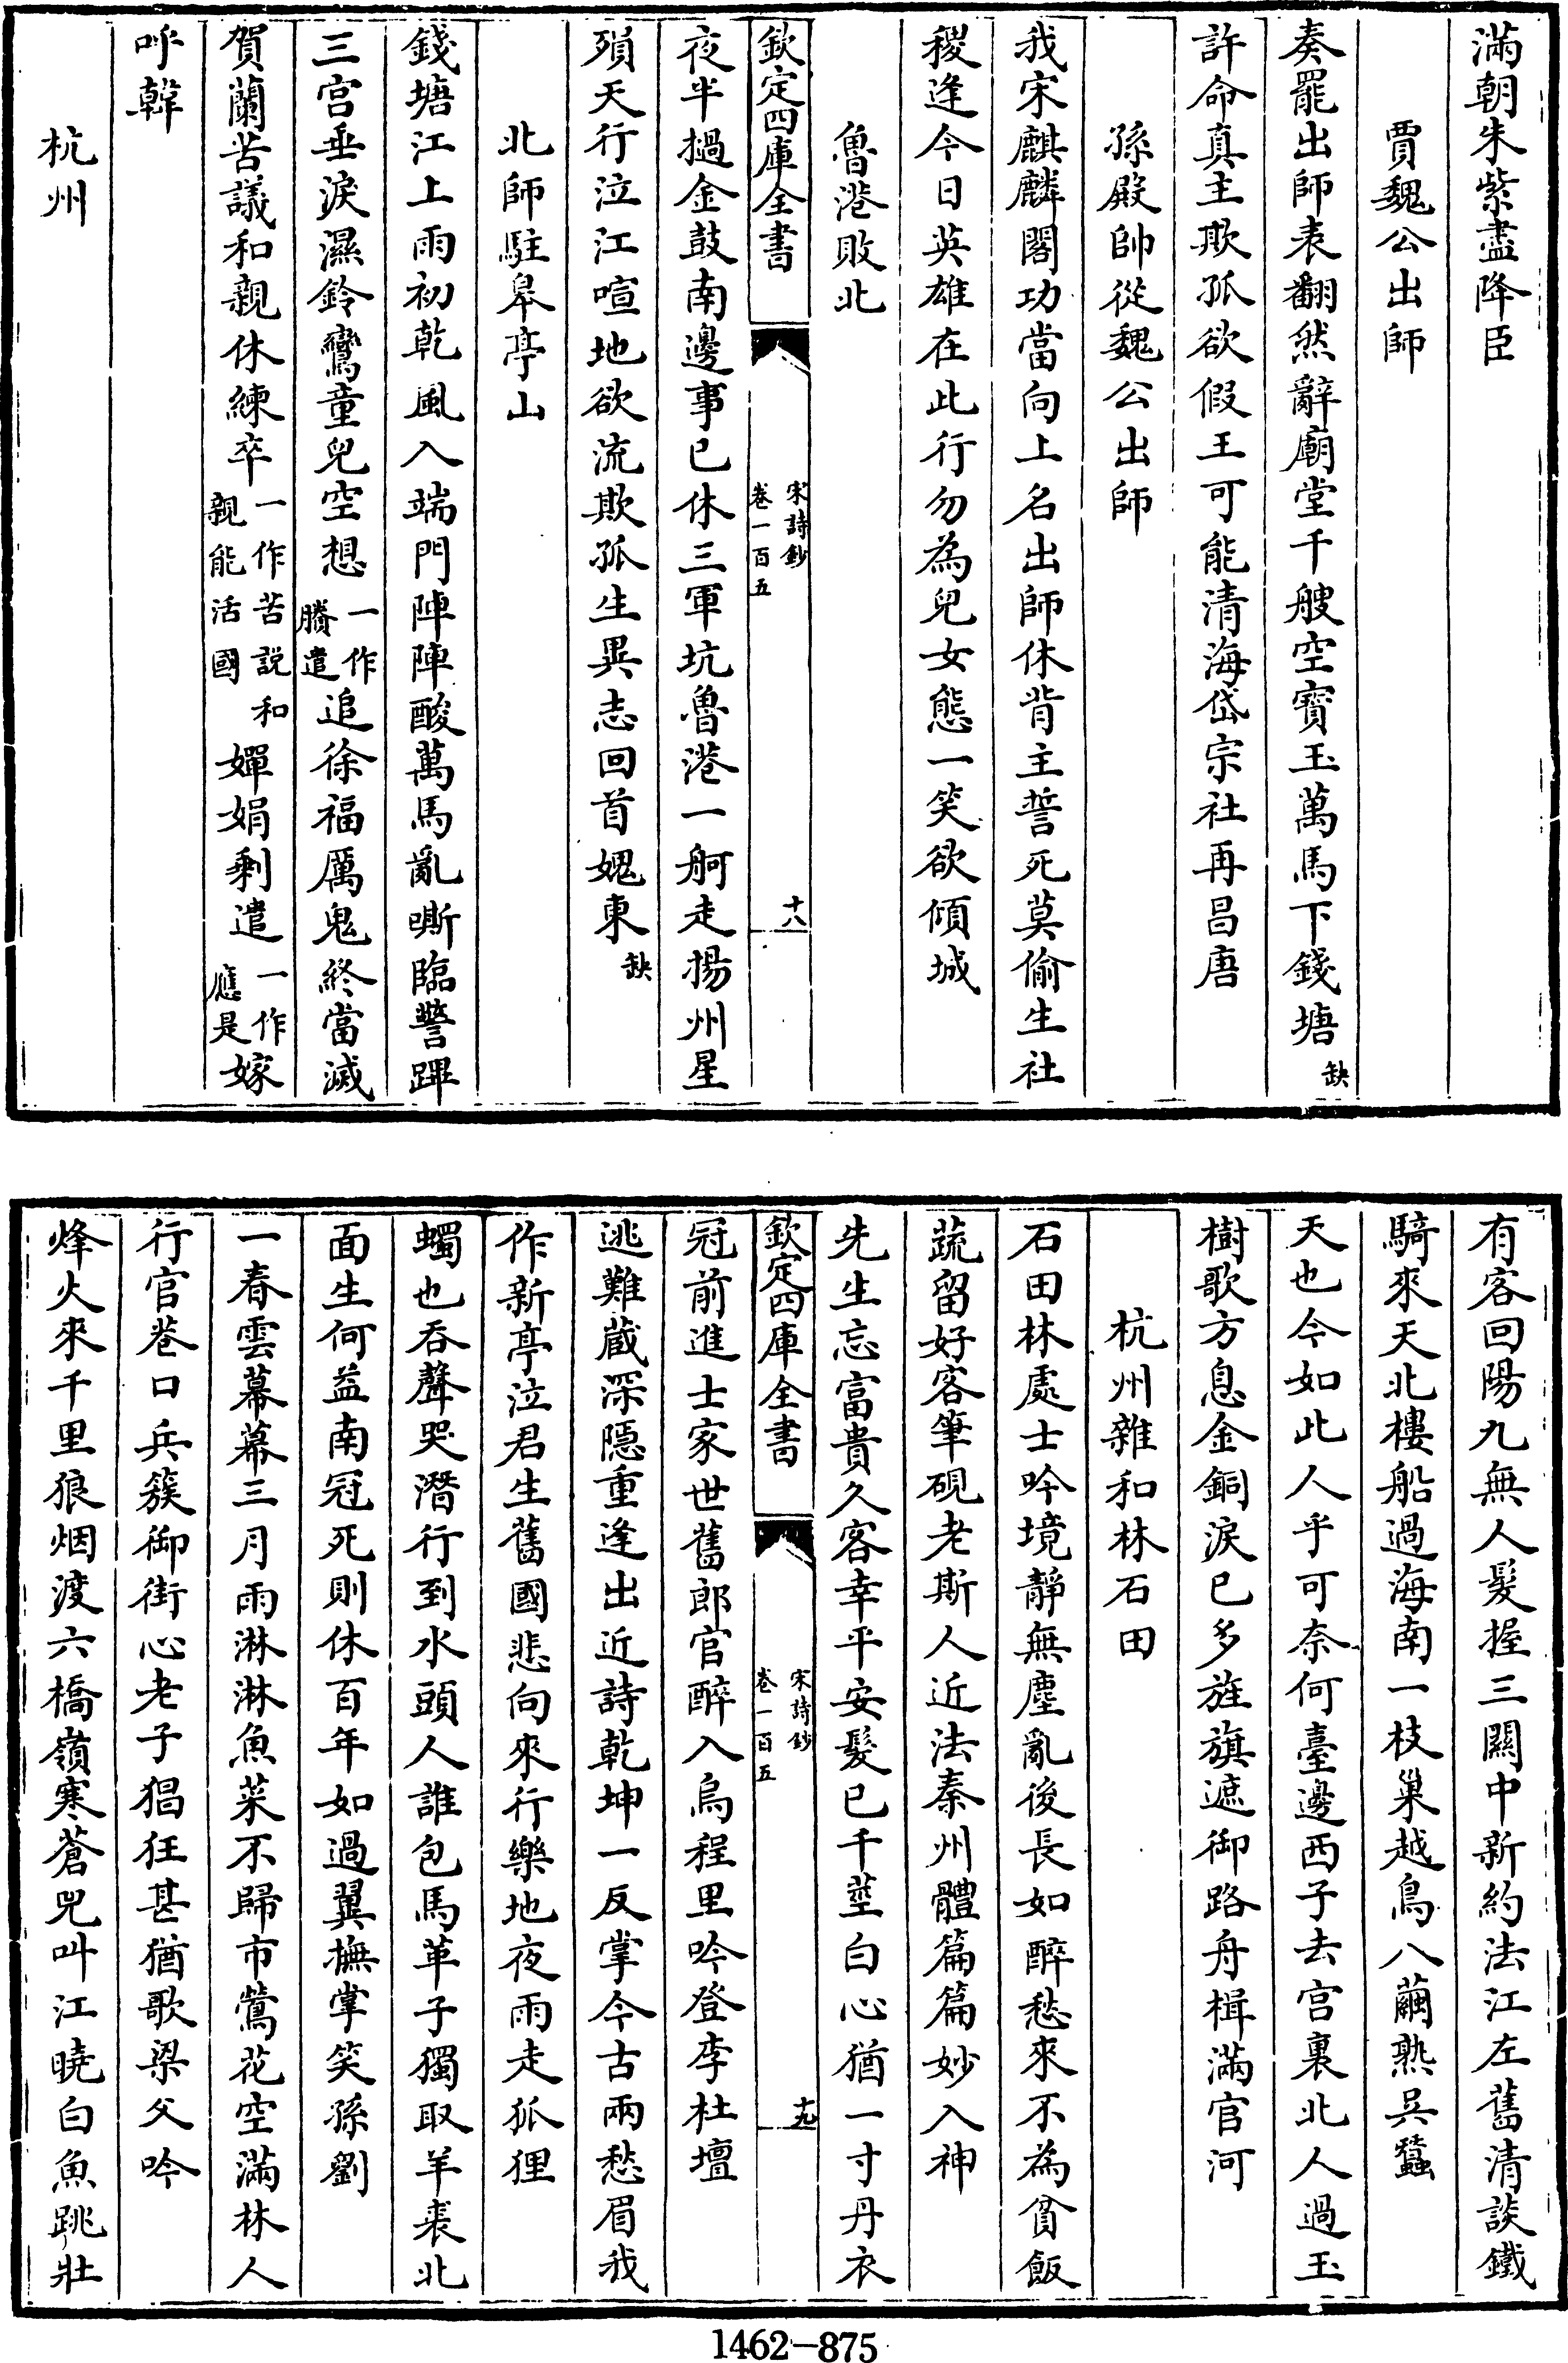 滿朝朱紫盡降臣
賈魏公出師
奏罷出師表翻然辭廟堂千艘空寶玉萬馬下錢塘缺
許命真主欺孤欲假王可能清海岱宗社再昌唐
孫殿帥從魏公出師
我宋麒麟閣功當向上名出師休背主誓死莫偷生社
稷逢今日英雄在此行勿為兒女態一笑欲傾城
魯港敗北
欽定四庫全書
宋詩鈔
卷一百五
十八
夜半撾金鼓南邊事已休三軍坑魯港一舸走揚州星
殞天行泣江喧地欲流欺孤生異志回首媿東缺
北師駐皋亭山
錢塘江上雨初乾風入端門陣陣酸萬馬亂嘶臨警蹕
三宮垂淚濕鈴鸞童兒空想一作賸遣追徐福厲鬼終當滅
賀蘭苦議和親休練卒一作苦説和親能活國嬋娟剩遣一作應是嫁
呼韓
杭州
有客回陽九無人髮握三關中新約法江左舊清談鐵
騎來天北樓船過海南一枝巢越鳥八繭熟吳蠶
天也今如此人乎可奈何臺邊西子去宮裏北人過玉
樹歌方息金銅淚已多旌旗遮御路舟楫滿官河
杭州雜和林石田
石田林處士吟境靜無塵亂後長如醉愁來不為貧飯
蔬留好客筆硯老斯人近法秦州體篇篇妙入神
先生忘富貴久客幸平安髮已千莖白心猶一寸丹衣
欽定四庫全書
宋詩鈔
卷一百五
十九
冠前進士家世舊郎官醉入烏程里吟登李杜壇
逃難藏深隱重逢出近詩乾坤一反掌今古兩愁眉我
作新亭泣君生舊國悲向來行樂地夜雨走狐狸
蠋也吞聲哭潛行到水頭人誰包馬革子獨取羊裘北
面生何益南冠死則休百年如過翼撫掌笑孫劉
一春雲幕幕三月雨淋淋魚菜不歸市鶯花空滿林人
行官巷口兵簇御街心老子猖狂甚猶歌梁父吟
烽火來千里狼烟渡六橋嶺寒蒼兕叫江曉白魚跳壯
1462-875